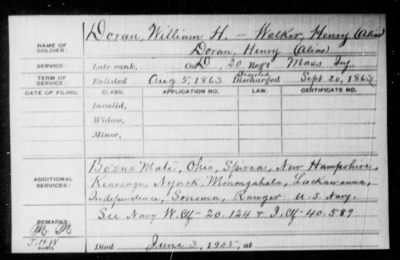 Doran, William H. — Walker, Henry (Alias)
NAME OF SOLDIER:
Doran, Henry (Alias)
SERVICE: Late rank, Co D, 20 Reg't Mass Inf
TERM OF SERVICE: Enlisted Aug 5, 1863 Deserted Discharged Sept. 20, 1863
DATE OF FILING. CLASS. APPLICATION NO. LAW. CERTIFICATE NO.
Invalid,
Widow,
Minor,
ADDITIONAL SERVICES: Bo'sns Mate, Ohio, Spirea, New Hampshire,
Kearsarge, Nyack, Monongahela, Lackawanna,
Independence, Sonoma, Ranger U.S. Navy.
See Navy W. Ctf 20,124 & I. Ctf 40,589
REMARKS:
Died June 3, 1905, at